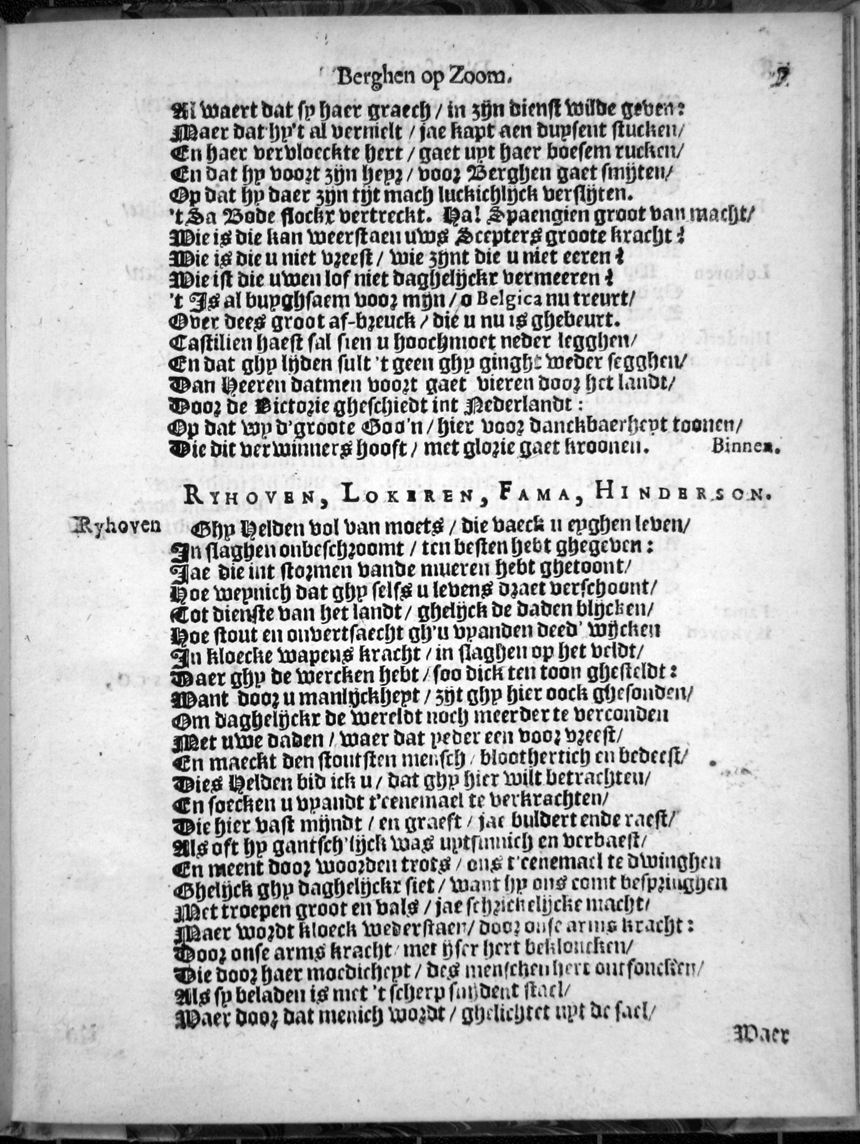 Berghen op Zoom. 7
Al waert dat sy haer graech / in zijn dienst wilde geven:
Maer dat hy't al vernielt / jae kapt aen duysent stucken/
En haer vervloeckte hert / gaet uyt haer boesem rucken/
En dat hy voort zijn heyr / voor Berghen gaet smijten/
Op dat hy daer zijn tijt mach luckichlijck verslijten.
'tSa Bode flockx vertreckt. Ha! Spaengien groot van macht/
Wie is die kan weerstaen uws Scepters groote kracht?
Wie is die u niet vreest / wie zijnt die u niet eeren?
Wie ist die uwen lof niet daghelijckx vermeeren?
't Is al buyghsaem voor mijn / o Belgica nu treurt/
Over dees groot af-breuck / die u nu is ghebeurt.
Castilien haest sal sien u hoochmoet neder legghen/
En dat ghy lijden sult 't geen ghy ginght weder segghen/
Dan Heeren datmen voort gaet vieren door het landt/
Door de Victorie gheschiedt int Nederlandt:
Op dat wy d'groote Goo'n / hier voor danckbaerheyt toonen/
Die dit verwinners hooft / met glorie gaet kroonen. Binnen.
RYHOVEN, LOKEREN, FAMA, HINDERSON.
Ryhoven Ghy Helden vol van moets / die vaeck u eyghen leven/
In slaghen onbeschroomt / ten besten hebt ghegeven:
Jae die int stormen vande mueren hebt ghetoont/
Hoe weynich dat ghy selfs u levens draet verschoont/
Tot dienste van het landt / ghelijck de daden blijcken/
Hoe stout en onvertsaecht gh'u vyanden deed' wijcken
In kloecke wapens kracht / in slaghen op het veldt/
Daer ghy de wercken hebt / soo dick ten toon ghesteldt:
Want door u manlijckheyt / zijt ghy hier oock ghesonden/
Om daghelijckx de wereldt noch meerder te verconden
Met uwe daden / waer dat yeder een voor vreest/
En maeckt den stoutsten mensch / bloothertich en bedeest/
Dies Helden bid ick u / dat ghy hier wilt betrachten/
En soecken u vyandt t'eenemael te verkrachten/
Die hier vast mijndt / en graeft / jae buldert ende raest/
Als oft hy gantsch'lijck was uytsinnich en verbaest/
En meent door woorden trots / ons t'eenemael te dwinghen
Ghelijck ghy daghelijckx siet / want hy ons comt bespringhen
Met troepen groot en vals / jae schrickelijcke macht/
Maer wordt kloeck wederstaen / door onse arms kracht:
Door onse arms kracht / met yser hert bekloncken/
Die door haer moedicheyt / des menschen hert ontfoncken/
Als sy beladen is met 't scherp snydent stael/
Waer door dat menich wordt / ghelichtet uyt de sael/
Waer